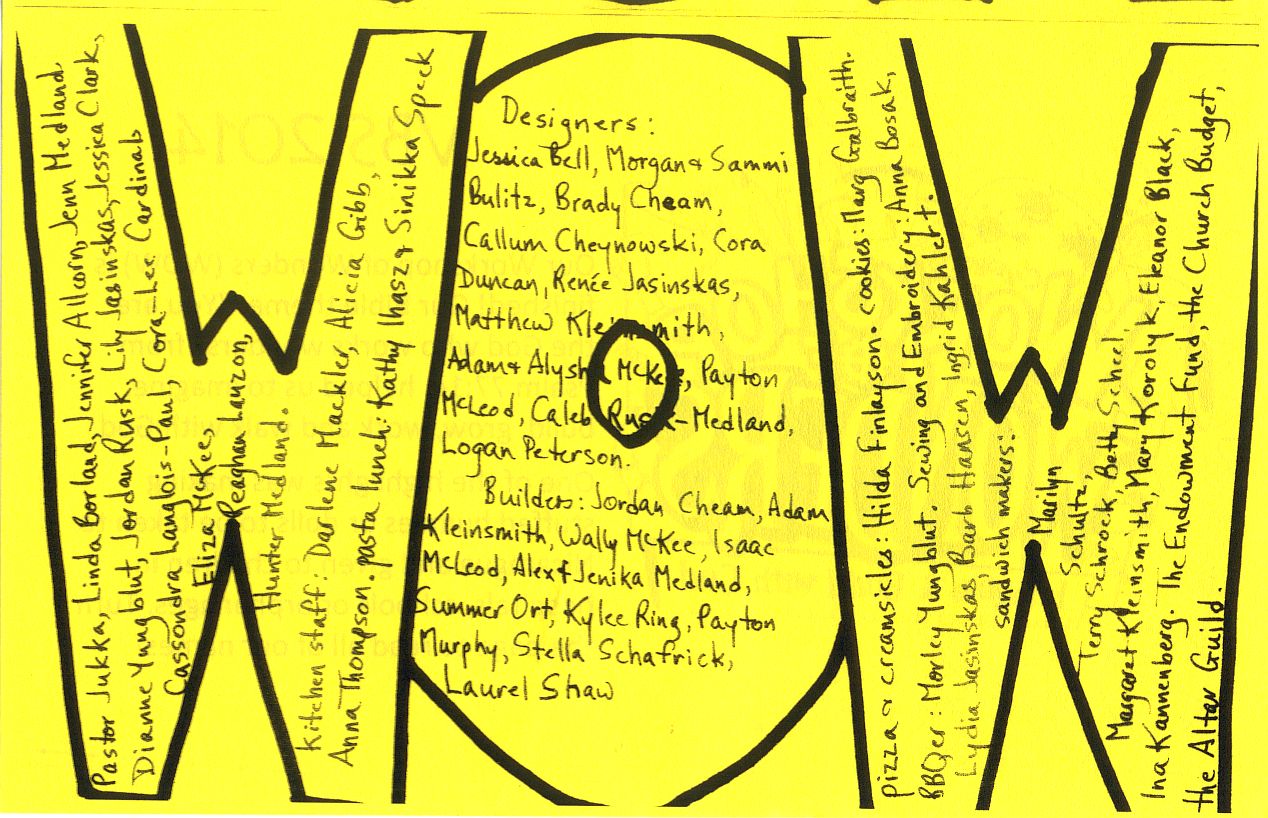 Pastor Jukka, Linda Borland, Jennifer Allcorn, Jenn Medland
Dianne Yungblut, Jordan Rusk, Lily Jasinskas, Jessica Clark,
Cassondra Langlois-Paul, Cora-Lee Cardinals
Eliza McKee,
Reaghan Lauzon,
Hunter Medland.
Kitchen staff: Darlene Mackler, Alicia Gibb,
Anna Thompson. pasta lunch: Kathy Ihasz & Sinikka Speck
Designers:
Jessica Bell, Morgan & Sammi
Bulitz, Brady Cheam,
Callum Cheynowski, Cora
Duncan, Renée Jasinskas,
Matthew Kleinsmith,
Adam & Alysha McKee, Payton
McLeod, Caleb Rusk-Medland,
Logan Peterson.
Builders: Jordan Cheam, Adam
Kleinsmith, Wally McKee, Isaac
McLeod, Alex & Jenika Medland,
Summer Ort, Kylee Ring, Payton
Murphy, Stella Schafrick,
Laurel Shaw
pizza & creamsicles: Hilda Finlayson. cookies: Marg Galbraith.
BBQer: Morley Yungblut. Sewing and Embroidery: Anna Bosak,
Lydia Jasinskas, Barb Hansen, Ingrid Kahlert.
sandwich makers:
Marilyn
Schultz,
Terry Schrock, Betty Scheel
Margaret Kleinsmith, Mary Korolyk, Eleanor Black,
Ina Kannenberg. The Endowment Fund, the Church Budget,
the Altar Guild.